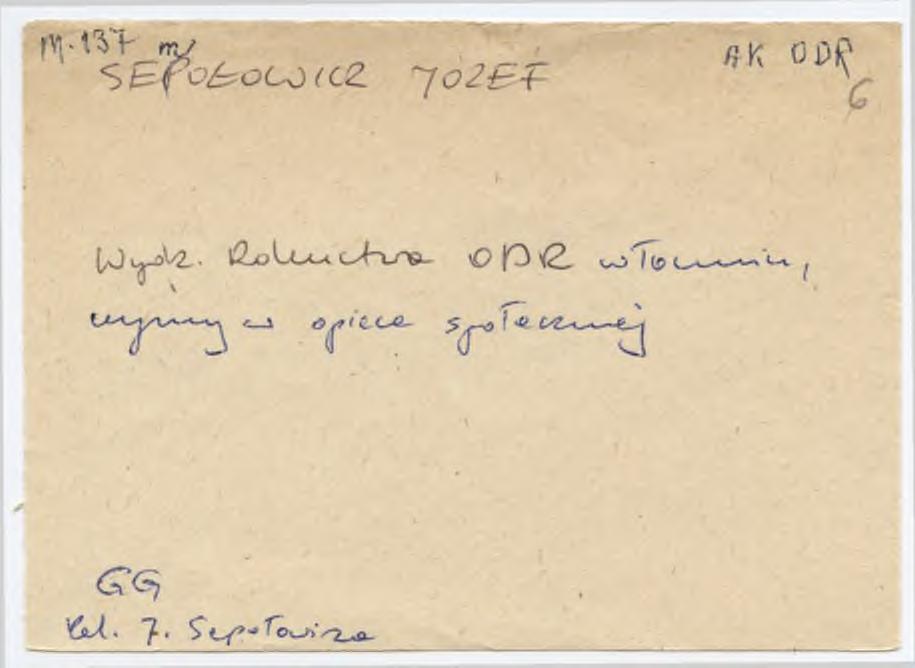 M-137 m/ AK ODR
SEPOŁOWICZ JÓZEF 6
Wydz. Rolnictwa ODR w Toruniu,
czynny w opiece społecznej
GG
Rel. J. Sepołowicza